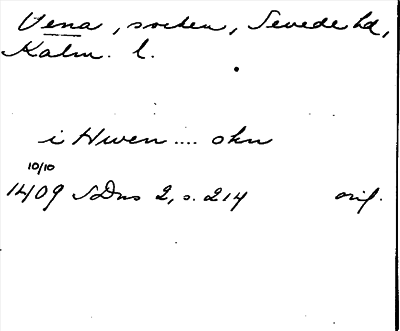 Vena, socken, Sevede hd,
Kalm. l.
i Hwen .... skn
10/10
1409 SDns 2, s. 214 orig.